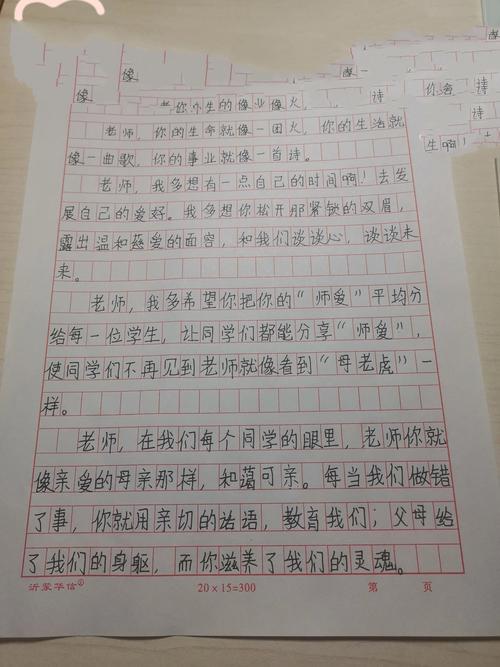 像
像
诗
你
诗
生啊！
老师，你的生命就像一团火，你的生活就
像一曲歌，你的事业就像一首诗。
老师，我多想有一点自己的时间啊！去发
展自己的爱好。我多想你松开那紧锁的双眉，
露出温和慈爱的面容，和我们谈谈心，谈谈未
来。
老师，我多希望你把你的“师爱”平均分
给每一位学生，让同学们都能分享“师爱”，
使同学们不再见到老师就像看到“母老虎”一
样。
老师，在我们每个同学的眼里，老师你就
像亲爱的母亲那样，和蔼可亲。每当我们做错
了事，你就用亲切的话语，教育我们；父母给
了我们的身躯，而你滋养了我们的灵魂。
沂蒙华信 20×15=300 第 页